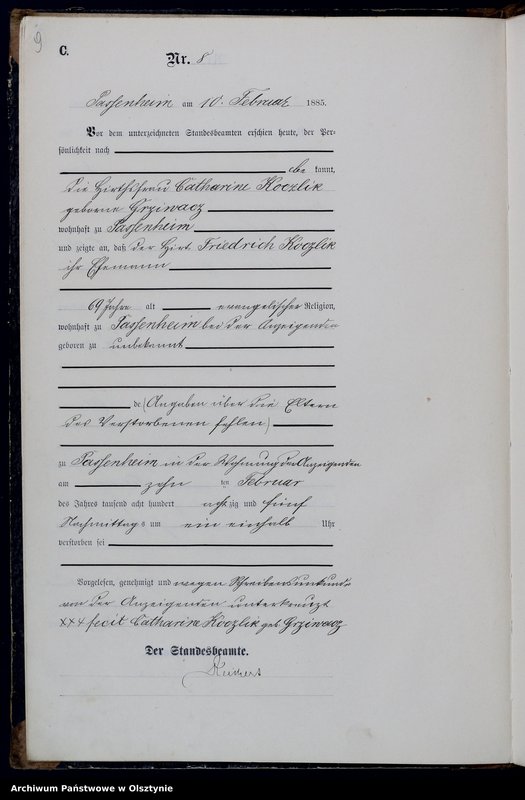 9
C.
Nr. 8
Passenheim am 10. Februar 1885.
Vor dem unterzeichneten Standesbeamten erschien heute, der Per-
sönlichkeit nach
be kannt,
die Hirthsfrau Catharine Koczlik
geborne Grziwacz
wohnhaft zu Passenheim
und zeigte an, daß der Hirt Friedrich Koczlik
ihr Ehemann
69 Jahre alt evangelischer Religion,
wohnhaft zu Passenheim bei der Anzeigenden
geboren zu unbekannt
de (Angaben über die Eltern
des Verstorbenen fehlen)
zu Passenheim in der Wohnung der Anzeigenden
am zehn ten Februar
des Jahres tausend acht hundert acht zig und fünf
Nachmittag s um ein einhalb Uhr
verstorben sei
Vorgelesen, genehmigt und wegen Schreibensunkunde
von der Anzeigenden unterkreuzt
XXX fecit Catharine Koczlik geb Grziwacz
Der Standesbeamte.
Archiwum Państwowe w Olsztynie